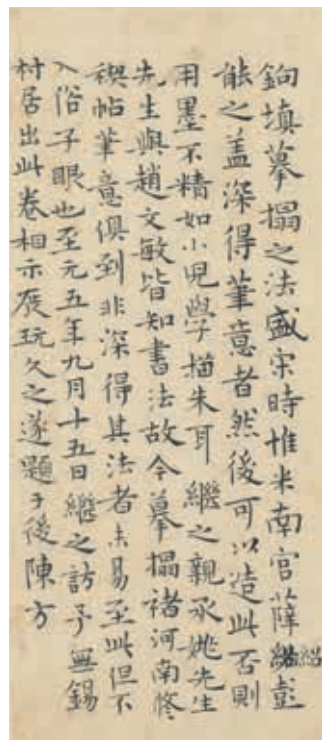 鉤填摹搨之法盛宋時惟米南宮薛紹彭
能之盖深得筆意者然後可以造此否則
用墨不精如小兒學描朱耳繼之親承姚先生
先生與趙文敏皆知書法故今摹搨褚河南脩
禊帖筆意俱到非深得其法者未易至此但不
入俗子眼也至元五年九月十五日繼之訪予無錫
村居出此卷相示展玩久之遂題于後陳方